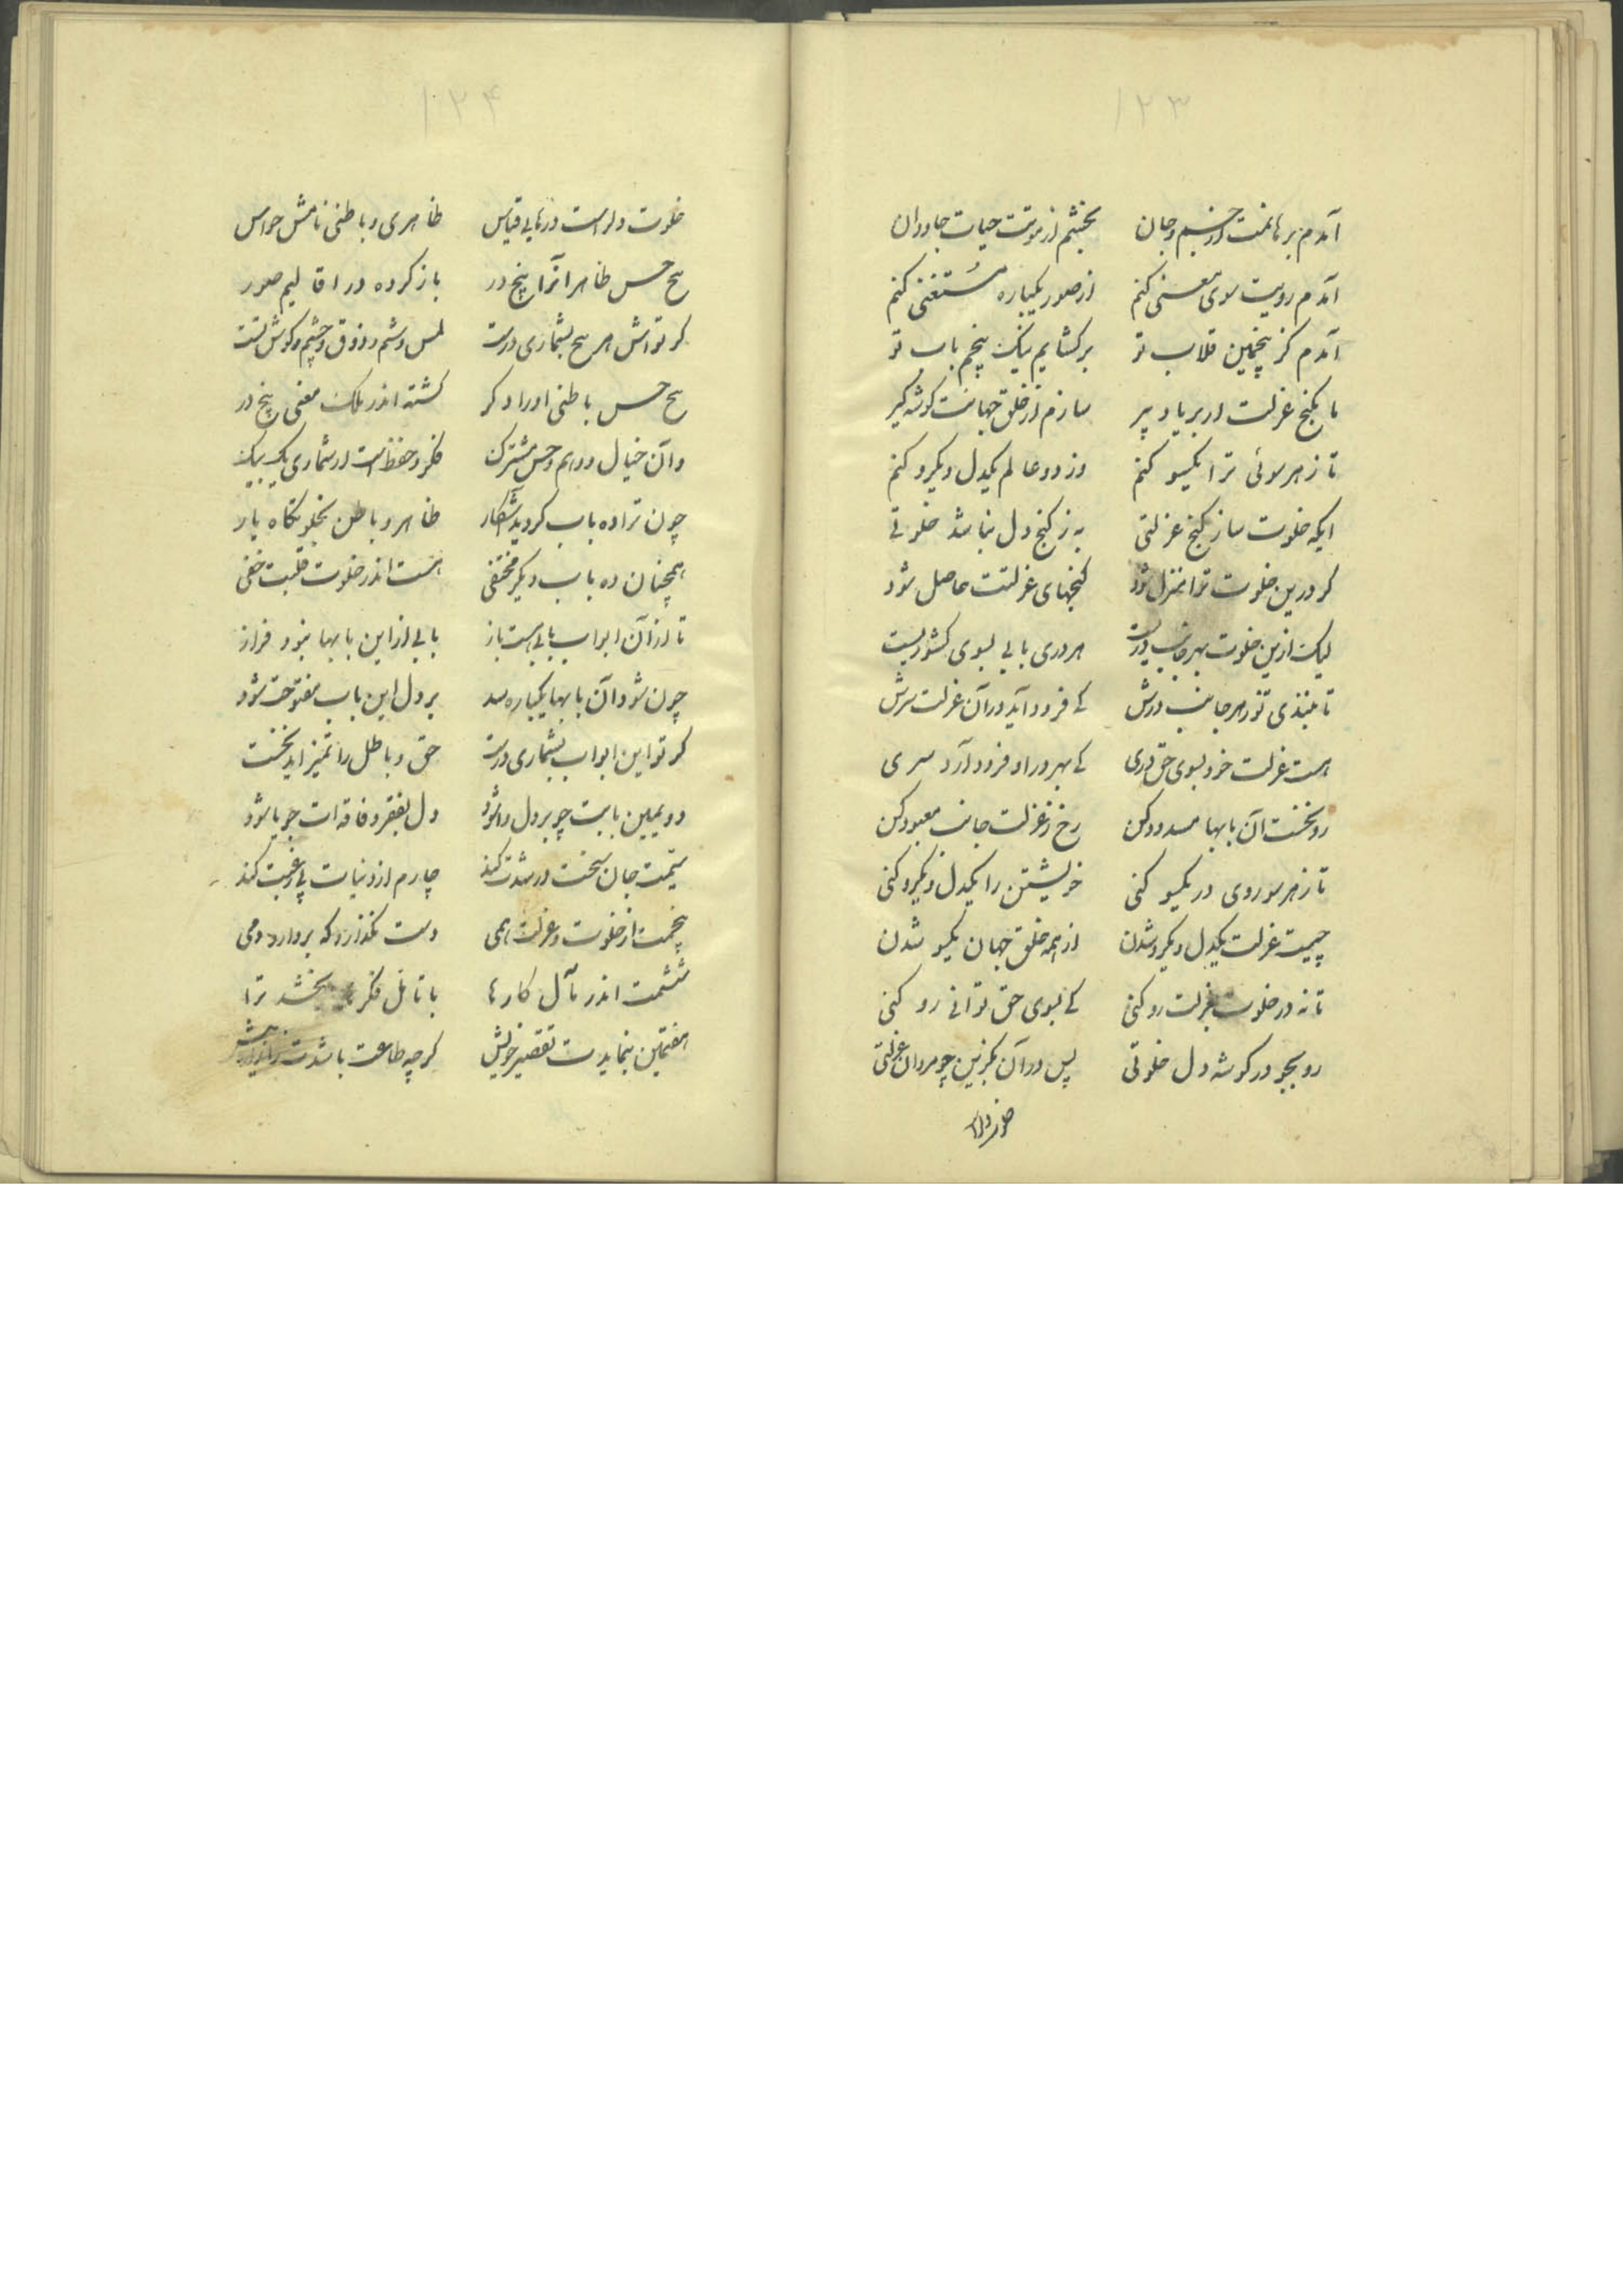 ۱۲۳
آمدم برهانمت از جسم و جان بخشم از موتت حیات جاودان
آمدم رویت سوی معنی کنم از صور یکباره مستغنی کنم
آمدم کز پنجمین قلاب تو برکشایم نیک پنجم باب تو
تا بکنج عزلت از بریاد پیر سازم از خلق جهانت کوشه کیر
تا ز هر سوئی ترا یکسو کنم وز دو عالم یکدل و یکرو کنم
ایکه خلوت ساز کنج عزلتی به ز کنج دل نباشد خلوتی
کر درین خلوت ترا منزل شود کنجهای عزلتت حاصل شود
لیک ازین خلوت بهر جانب دریست هر دری بابی بسوی کشوریست
تا نبندی تو ز هر جانب درش کی فرود آید در آن عزلت سرش
هست عزلت خود بسوی حق دری کی بهر در او فرود آرد سری
رو نخست آن بابها مسدود کن رخ ز عزلت جانب معبود کن
تا ز هر سو روی در یکسو کنی خویشتن را یکدل و یکرو کنی
چیست عزلت یکدل و یکرو شدن از همه خلق جهان یکسو شدن
تا نه در خلوت بعزلت رو کنی کی بسوی حق توانی رو کنی
رو بجو در کوشه دل خلوتی پس در آن بکزین چو مردان عزلتی
خلوت دل
۱۲۴
خلوت دلراست درهای قیاس ظاهری و باطنی نامش حواس
پنج حس ظاهر آنرا پنج در باز کرده در اقالیم صور
کر تو اش هر پنج بشماری درست لمس و شم و ذوق و چشم و کوش تست
پنج حس باطنی او را دکر کشته اندر ملک معنی پنج در
وآن خیال و وهم و حس مشترک فکر و حفظ است ار شماری یک بیک
چون ترا ده باب کردید آشکار ظاهر و باطن بخلوتکاه یار
همچنان ده باب دیکر مختفی هست اندر خلوت قلبت خفی
تا از آن ابواب بابی هست باز بابی از این بابها نبود فراز
چون شود آن بابها یکباره سد بر دل این باب مفتوحت شود
کر تو این ابواب بشماری درست حق و باطل را تمیز آید نخست
دویمین بابت چو بر دل وا شود دل بفقر و فاقه ات جویا شود
سیمت جان سخت در شدت کند چارم از دنیات بی رغبت کند
پنجمت از خلوت و عزلت همی دست نکذارد که بردارد دمی
ششمت اندر مآل کارها با تامل فکر بخشد ترا
هفتمین بنمایدت تقصیر خویش کرچه طاعت باشدت بیش